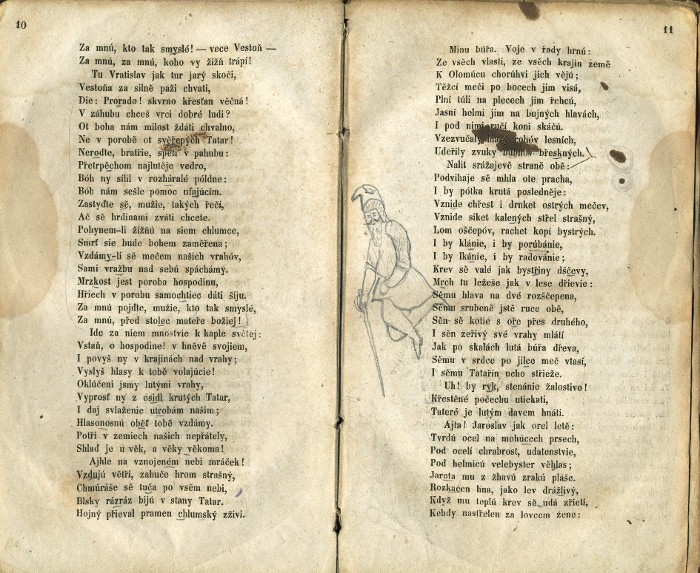 10
Za mnú, kto tak smyslé! — vece Vestoň —
Za mnú, za mnú, koho vy žížň trápí!
Tu Vratislav jak tur jarý skočí,
Vestoňa za silně paži chvátí,
Die: Prorado! skvrno křesťan věčná!
V záhubu chceš vrci dobré ludi?
Ot boha nám milost ždáti chvalno,
Ne v porobě ot svěřepých Tatar!
Neroďte, bratřie, spěti v pahubu:
Přetrpěchom najlutěje vedro,
Bóh ny sílil v rozhárale póldne:
Bóh nám sešle pomoc ufajúcím.
Zastyďte sě, mužie, takých řečí,
Ač sě hrdinami zváti chcete.
Pohynem-li žížňú na siem chlumce,
Smrť sie bude bohem zaměřena;
Vzdámy-li sě mečem našich vrahóv,
Sami vražbu nad sebú spáchámy.
Mrzkost jest poroba hospodinu,
Hřiech v porobu samochtiec dáti šíju.
Za mnú pojďte, mužie, kto tak smyslé,
Za mnú, před stolec mateře božiej!
Ide za niem mnostvie k kaple světej:
Vstaň, o hospodine! v hněvě svojiem,
I povyš ny v krajinách nad vrahy;
Vyslyš hlasy k tobě volajúcie!
Oklúčeni jsmy lutými vrahy,
Vyprosť ny z osidl krutých Tatar,
I daj svlaženie utrobám našim;
Hlasonosnú oběť tobě vzdámy.
Potři v zemiech našich nepřátely,
Shlaď je u věk, a věky věkoma!
Ajhle na vznojeném nebi mráček!
Vzdujú větři, zahuče hrom strašný,
Chmúráše sě túča po všem nebi,
Blsky rázráz bijú v stany Tatar.
Hojný přieval pramen chlumský zživi.
11
Minu búřa. Voje v řady hrnú:
Ze všech vlastí, ze všech krajin země
K Olomúcu chorúhvi jich vějú;
Těžcí meči po bocech jim visá,
Plní túli na plecech jim řehcú,
Jasní helmi jim na bujných hlavách,
I pod nimi ručí koni skáčú.
Vzezvučal rohóv lesních,
Udeřily zvuky bubnóv břeskných.
Nalit srážajevě straně obě:
Podvihaje sě mhla ote pracha,
I by pótka krutá poslednéje:
Vznide chřest i drnket ostrých mečev,
Vznide siket kalených střel strašný,
Lom oščepóv, rachet kopí bystrých.
I by klánie, i by porúbánie,
I by lkánie, i by radovánie;
Krev sě valé jak bystřiny dščevy,
Mrch tu ležeše jak v lese dřievie:
Sěmu hlava na dvé rozščepena,
Sěmu srubeně jstě ruce obě,
Sěn sě kotie s oře přes druhého,
I sěn zeřivý své vrahy mlátí
Jak po skalách lutá búřa dřeva,
Sěmu v srdce po jilce meč vtasí,
I sěmu Tatařín ucho střieže.
Uh! by ryk, stenánie žalostivo!
Křesťené počechu utiekati,
Tateré je lutým davem hnáti.
Ajta! Jaroslav jak orel letě:
Tvrdú ocel na mohúcech prsech,
Pod ocelí chrabrost, udatenstvie,
Pod helmicú velebyster věhlas;
Jarota mu z žhavú zrakú pláše.
Rozkacen hna, jako lev drážlivý,
Když mu teplú krev sě udá zřieti,
Kehdy nastřelen za lovcem žene: